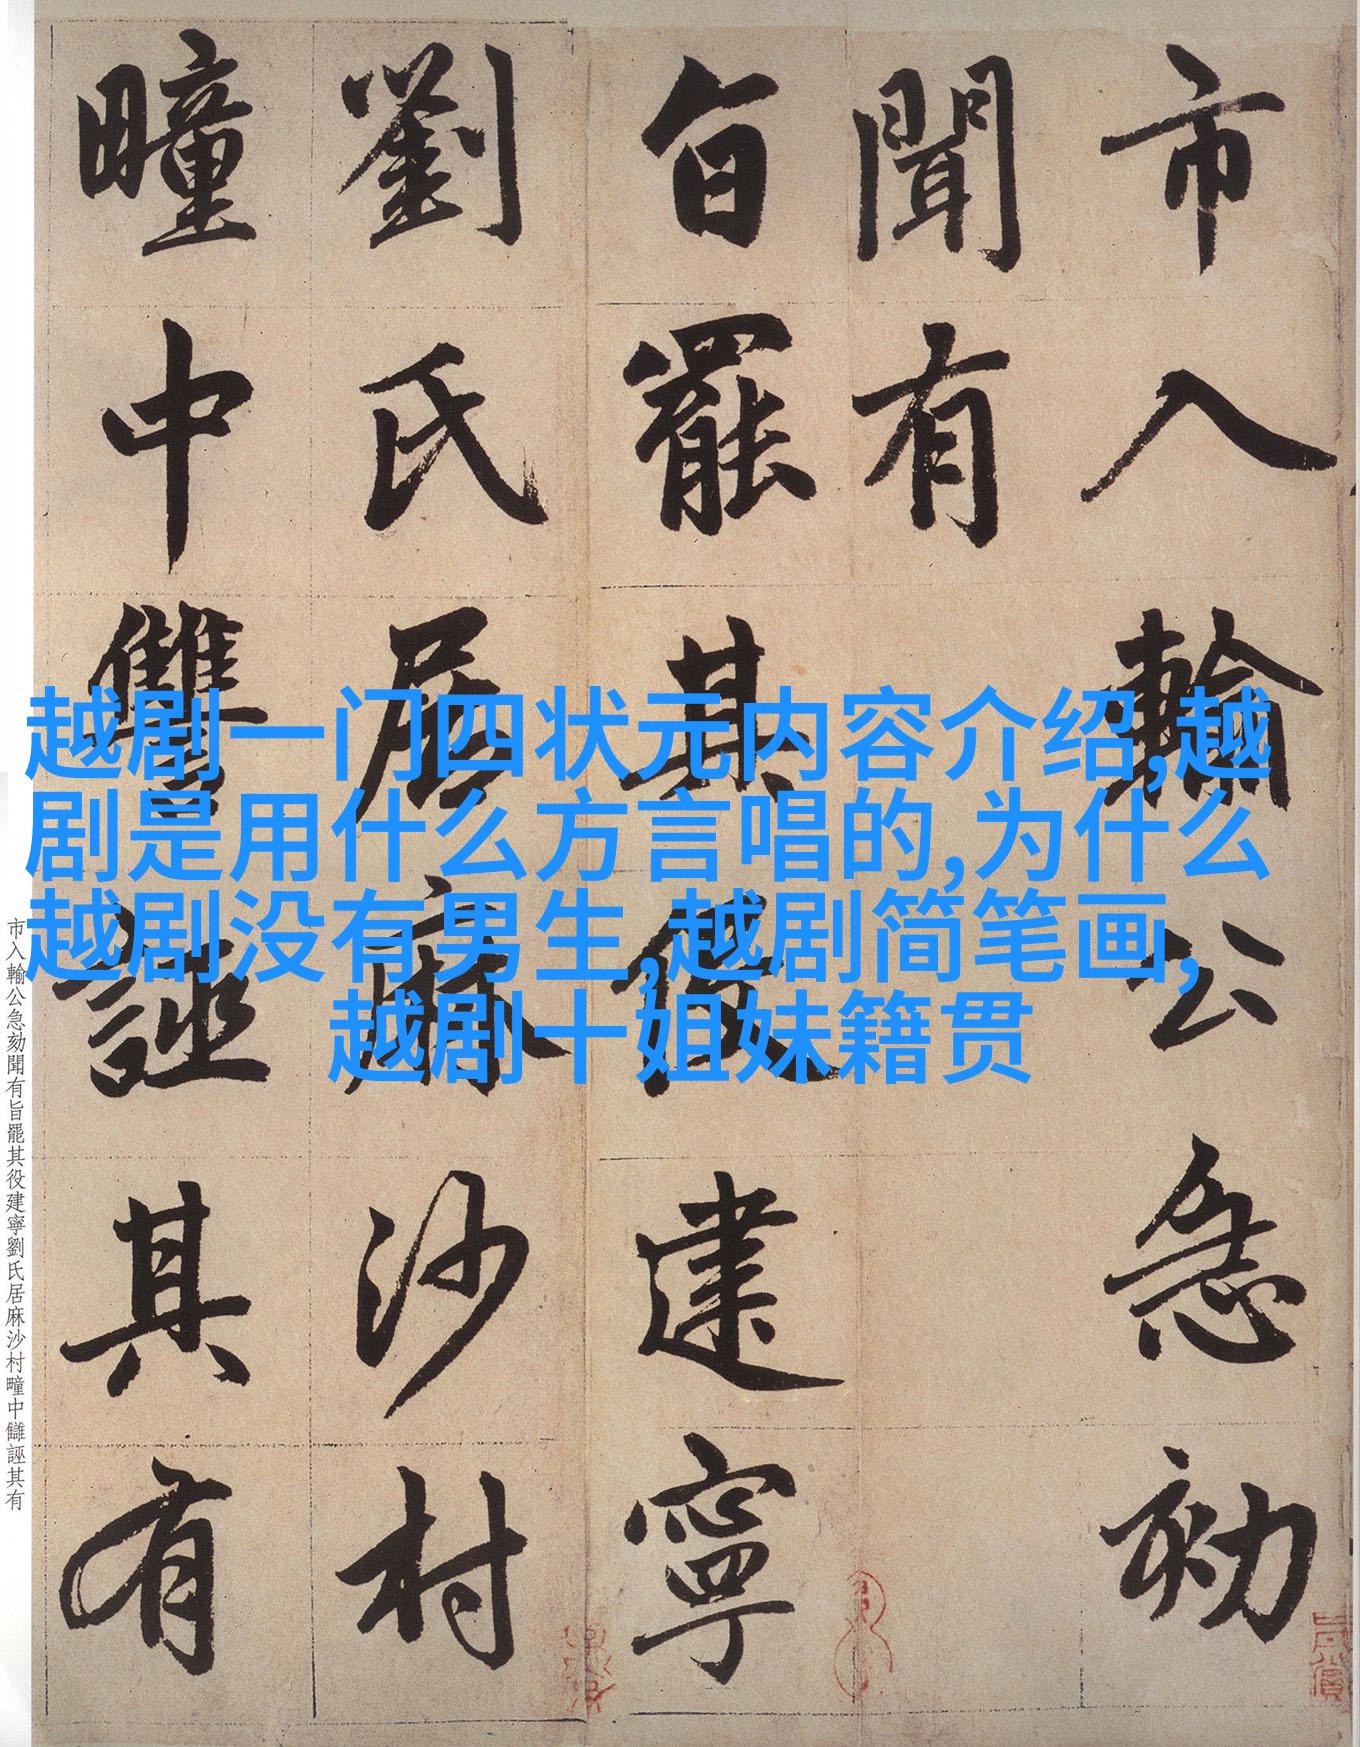 市入輸公急劾
聞有
旨罷其役建寧
劉氏居麻沙村
疃中讎誣其有
越剧一门四状元内容介绍,越
剧是用什么方言唱的,为什么
越剧没有男生,越剧简笔画,
越剧十姐妹籍贯
市入輸公急劾聞有旨罷其役建寧劉氏居麻沙村疃中讎誣其有